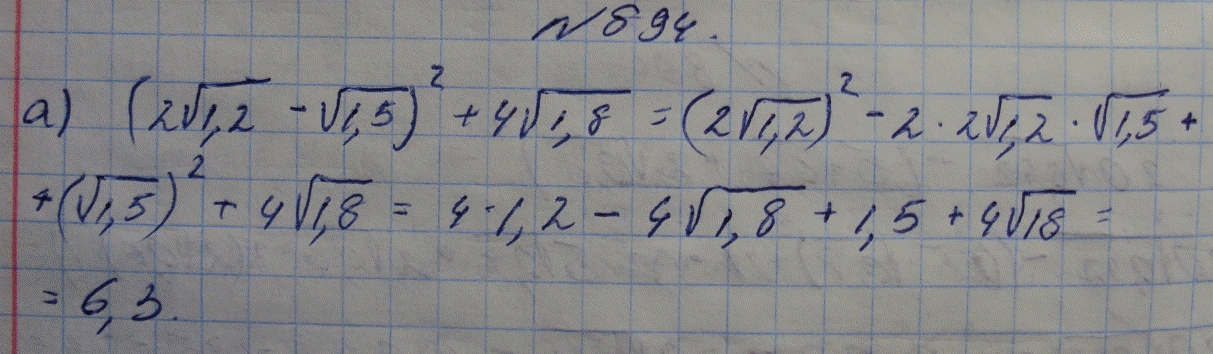 № 694.
а) (2√1,2 - √1,5)² + 4√1,8 = (2√1,2)² - 2 · 2√1,2 · √1,5 +
+ (√1,5)² + 4√1,8 = 4 · 1,2 - 4√1,8 + 1,5 + 4√18 =
= 6,3.